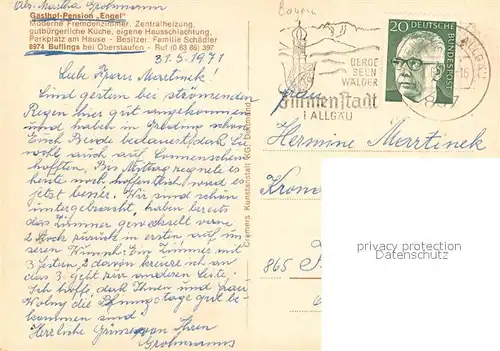 Abs. Martha Grohmann
Gasthof-Pension „Engel"
Moderne Fremdenzimmer, Zentralheizung,
gutbürgerliche Küche, eigene Hausschlachtung,
Parkplatz am Hause - Besitzer: Familie Schädler
8974 Buflings bei Oberstaufen - Ruf (0 63 86) 397
31.5.1971
Liebe Frau Merrtinek!
Sind gestern bei strömenden
Regen hier gut angekommen
und haben in
Euch Beide bedauert, daß Sie
wohl auch auf Sonnenschein
hofften. Bis Mittag regnete es
heute noch, hoffentlich wird es
jetzt besser. Wir sind schön
untergebracht, haben bereits
das Zimmer gewechselt vom
2. Stock zurück in ersten auf un
seren Wunsch. Ein Zimmer mit
3 Fenstern, 2 davon kreuze ich an
das 3. geht zur anderen Seite.
Ich hoffe, daß Ihnen und Frau
Wolny die Pfingsttage gut be-
kommen sind!
Herzliche Grüße von Ihren
Grohmanns
Cramers Kunstanstalt KG, Dortmund
Bayern
BERGE
SEEN
WÄLDER
Immenstadt
I ALLGÄU
20
DEUTSCHE
BUNDESPOST
Frau
Hermine Merrtinek
865
privacy protection
Datenschutz